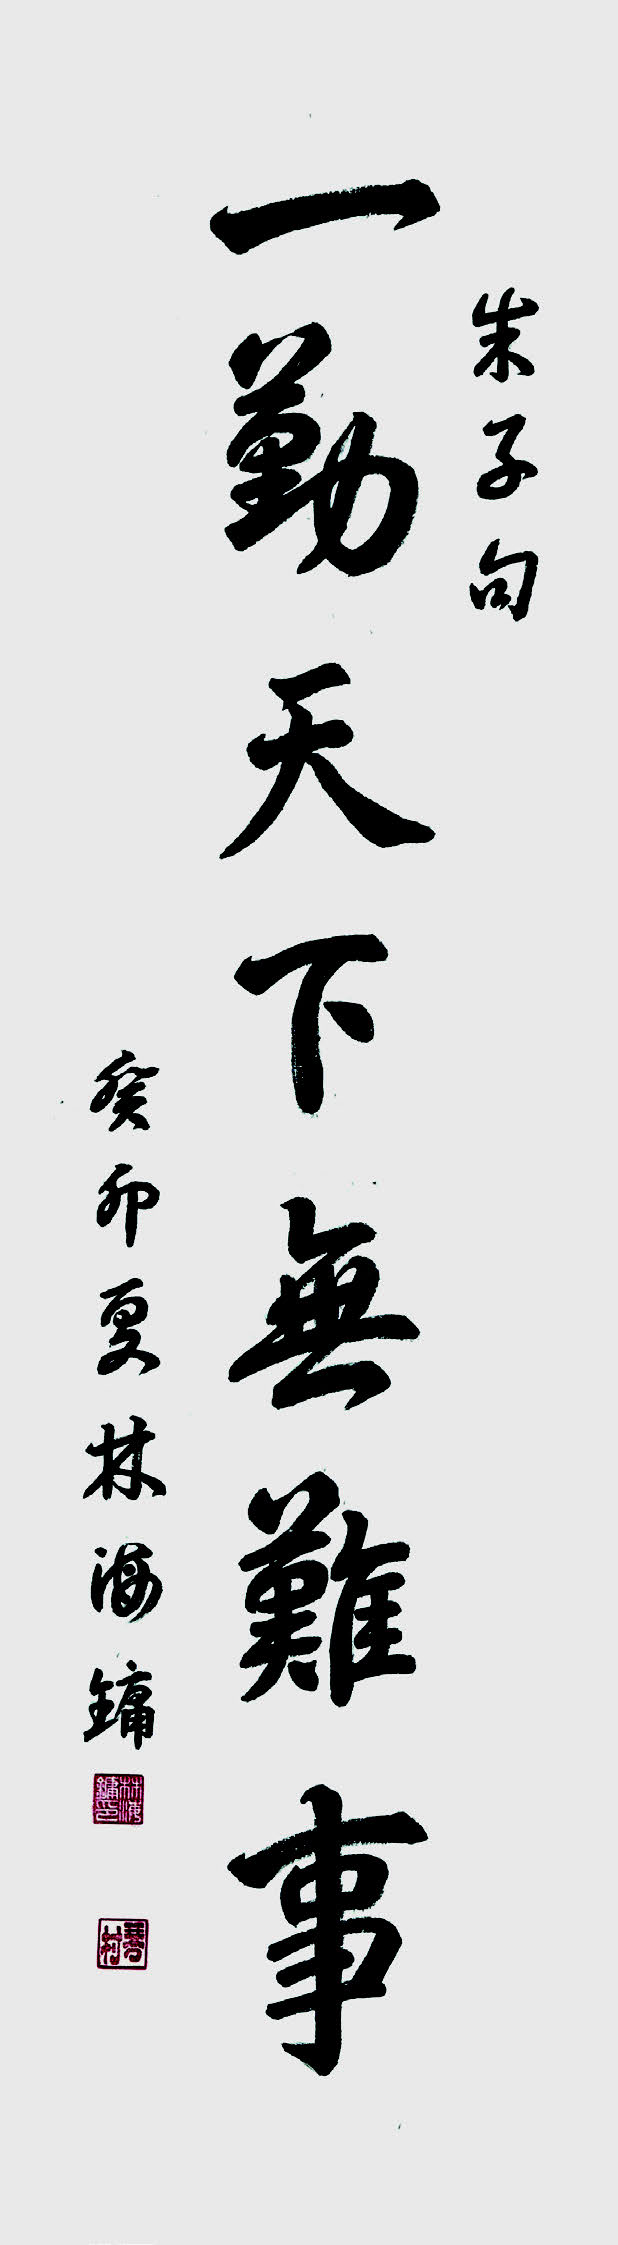 朱子句
一勤天下無難事
癸卯夏林海鏞
林海鏞印